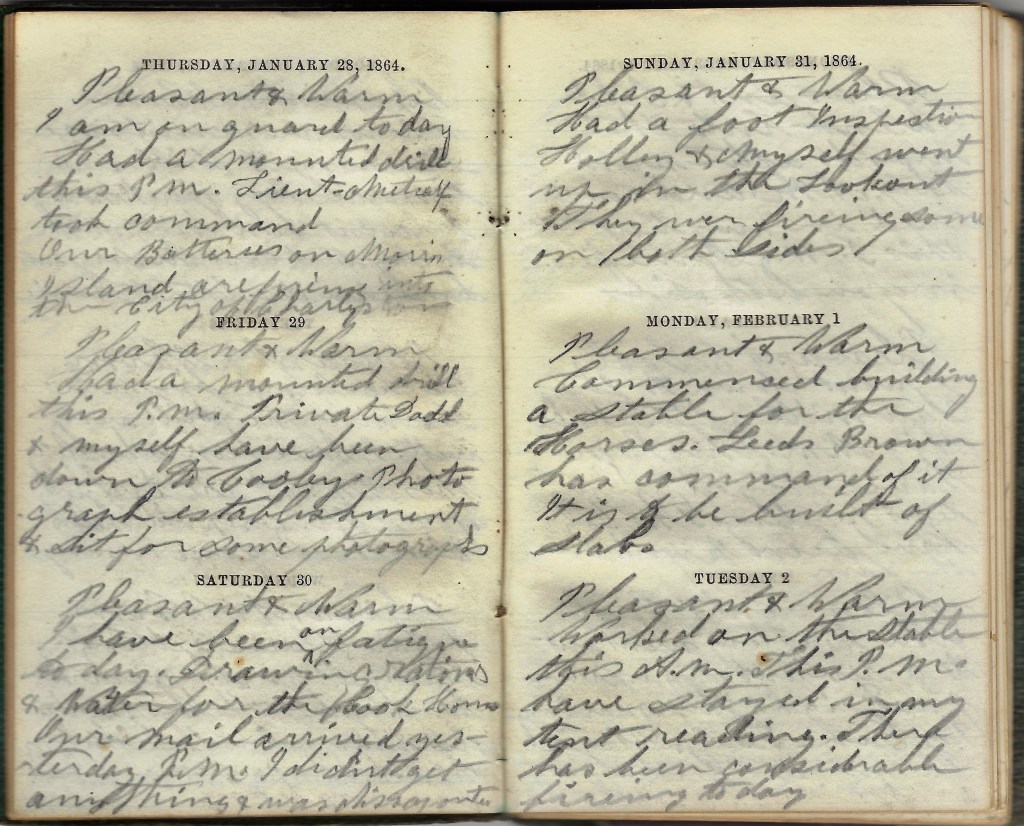 THURSDAY, JANUARY 28, 1864.
Pleasant & Warm
I am on guard today
Had a mounted drill
this P.M. Lieut. Metcalf
took command
Our Batteries on Morris
Island are fireing into
the City of Charleston
FRIDAY 29
Pleasant & Warm
Had a mounted drill
this P.M. Private Dodd
& myself have been
down to Cooley Photo
graph establishment
& sit for some photographs
SATURDAY 30
Pleasant & Warm
I have been on fatigue
to day. Drawing rations
& Water for the Cook House
Our mail arrived yes-
terday P.M. I didnt get
anything & was disapointed
SUNDAY, JANUARY 31, 1864.
Pleasant & Warm
Had a foot Inspection
Holley & myself went
up in the Lookout
They wer fireing some
on both sides
MONDAY, FEBRUARY 1
Pleasant & Warm
Commensed building
a stable for the
Horses. Leeds Brown
has command of it
It is to be built of
slabs
TUESDAY 2
Pleasant & Warm
Worked on the Stable
this A.M. This P.M.
have stayed in my
tent reading. There
has been considerable
fireing to day